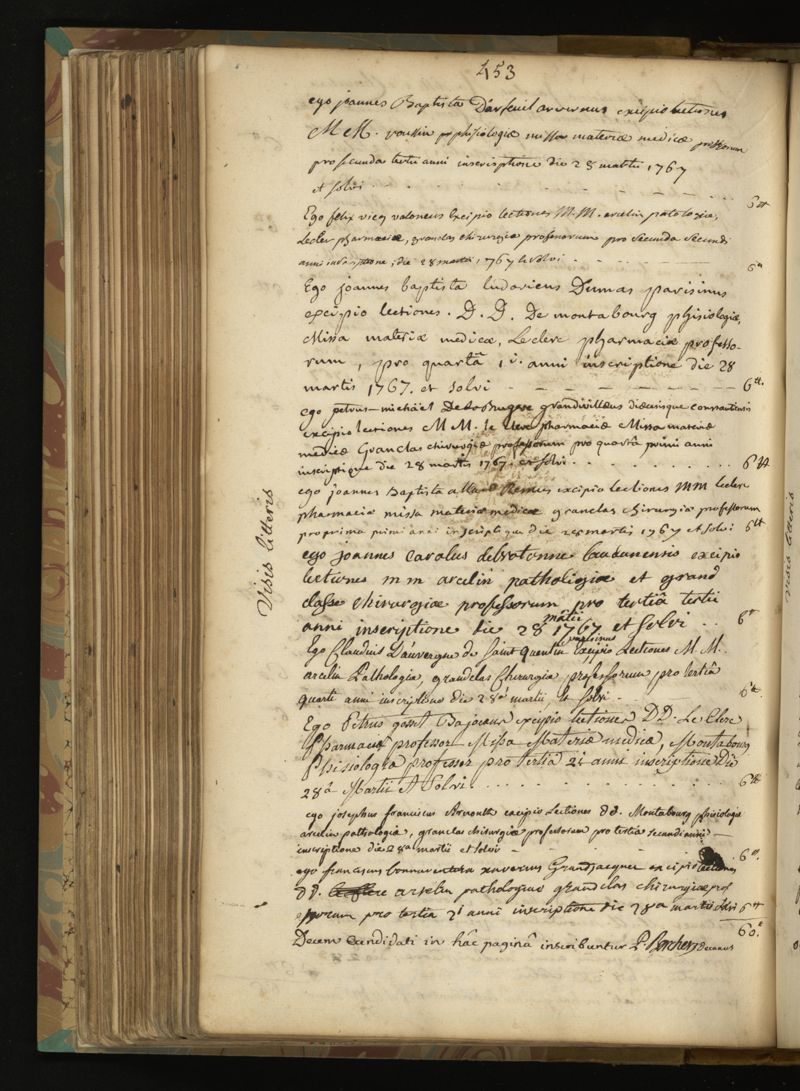 453
ego joannes Baptista Darfeuil arvernus excipio lectiones
M M. roussin phisiologiæ missa materiæ medicæ
pro secunda tertii anni inscriptione die 28 martii 1767
et solvi 6tt
Ego felix vicq valoneus Excipio lectiones M.M. arcelin patologiæ,
Leclerc pharmaciæ, granclas chirurgiæ professorum pro secunda secundi
anni inscriptione, die 28 martii, 1767 et solvi. 6tt
Ego joannes baptista ludovicus Dumas parisinus
excipio lectiones. D. D. De montabourg phisiologiæ,
Missa materiæ medicæ, Leclerc pharmaciæ professo-
rum, pro quartâ 1i. anni inscriptione die 28
martis 1767. et solvi 6tt.
ego petrus-michael grandvillæus diœcesisque constantiensis
excipio lectiones M M. le clerc pharmaciæ Missa materiæ
medicæ Granclas chirurgiæ professorum pro quartâ primi anni
inscriptione die 28 martis 1767. et solvi 6tt
ego joannes Baptista Remus excipio lectiones MM leclerc
pharmaciæ missa materiæ medicæ granclas chirurgiæ professorum
pro prima primi anni inscriptione die 28 martis 1767 et solvi 6tt
ego joannes carolus debrotonne laudunensis excipio
lectiones m m arcelin pathologiæ et grand
classe chirurgiæ professorum pro tertiâ tertii
anni inscriptione die 28 martii 1767 et solvi .. 6tt
Ego Claudius D'auvergne de Saint quentin Excipio Lectiones M. M.
arcelin Pathologia, grandclas Chirurgia professorum pro tertiâ
quarti anni inscriptione die 28â martii et solvi - 6tt.
Ego Petrus gosset Bajoceus excipio lectiones DD. Le Clerc
Pharmaciæ professor Missa Materiæ medicæ, Montabourg
Phisiologiæ professor pro tertiâ 2i anni inscriptione Die
28â Martii Et Solvi 6tt
ego josephus franciscus Arnoult excipio Lectiones dd. Montabourg phisiologiæ
arcelin pathologiæ, granclas chirurgiæ professorum pro tertia secundi anni
inscriptione die 28a martii et solvi - 6tt.
ego franciscus bonnaventura xaverius Grandjacquet excipio lectiones
DD. arcelin pathologiæ grandclas chirurgiæ prof
essorum pro tertia 2i anni inscriptione die 28a martii solvi 6tt
60tt
Decem candidati in hâc paginâ inscribuntur P. Bercher decanus
Visis litteris
Visis litteris